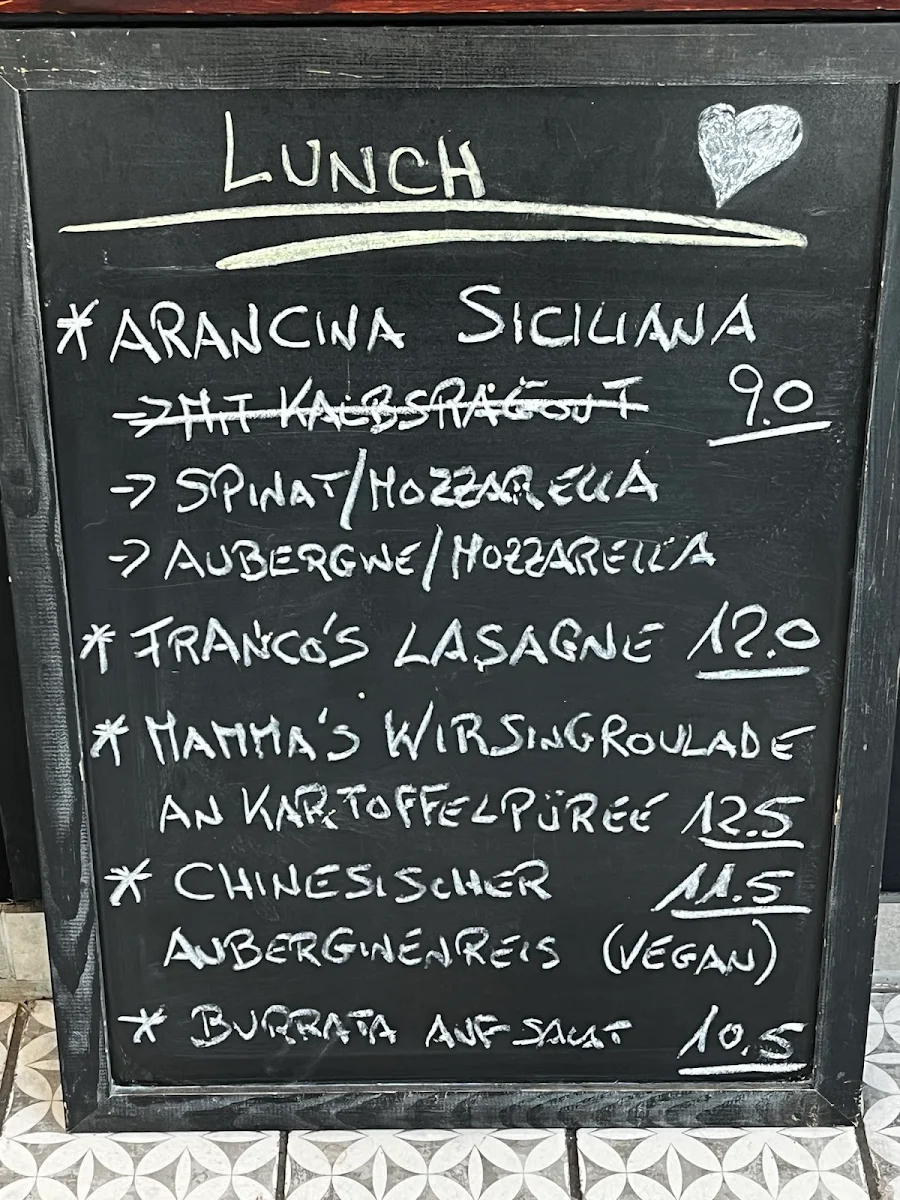 LUNCH
* ARANCINA SICILIANA
-> MIT KALBSRAGOUT 9.0
-> SPINAT/MOZZARELLA
-> AUBERGINE/MOZZARELLA
* FRANCO'S LASAGNE 12.0
* MAMMA'S WIRSINGROULADE
AN KARTOFFELPÜREE 12.5
* CHINESISCHER 11.5
AUBERGINENREIS (VEGAN)
* BURRATA AUF SALAT 10.5